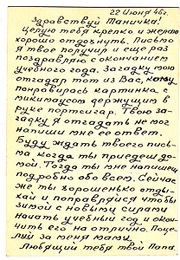 22 Июня 46г.
Здравствуй Таничка!
Целую тебя крепко и желаю
хорошо отдохнуть. Письмо
я твое получил и еще раз
поздравляю с окончанием
учебного года. Загадку мою
отгадал тот из Вас, кому
понравилась картинка с
микимаусом держущим в
руке портсигар. Твою за-
гадку я отгадать не мог
напиши мне ее ответ.
Буду ждать твоего пись-
ма когда ты приедеш до-
мой. Тогда ты мне напишеш
подробно обо всем. Сейчас
же ты хорошенько отды-
хай и поправляйся чтобы
зимой с новыми силами
начать учебный год и окон-
чить его на отлично. Поце-
луй за меня маму.
Любящий тебя твой Папа.